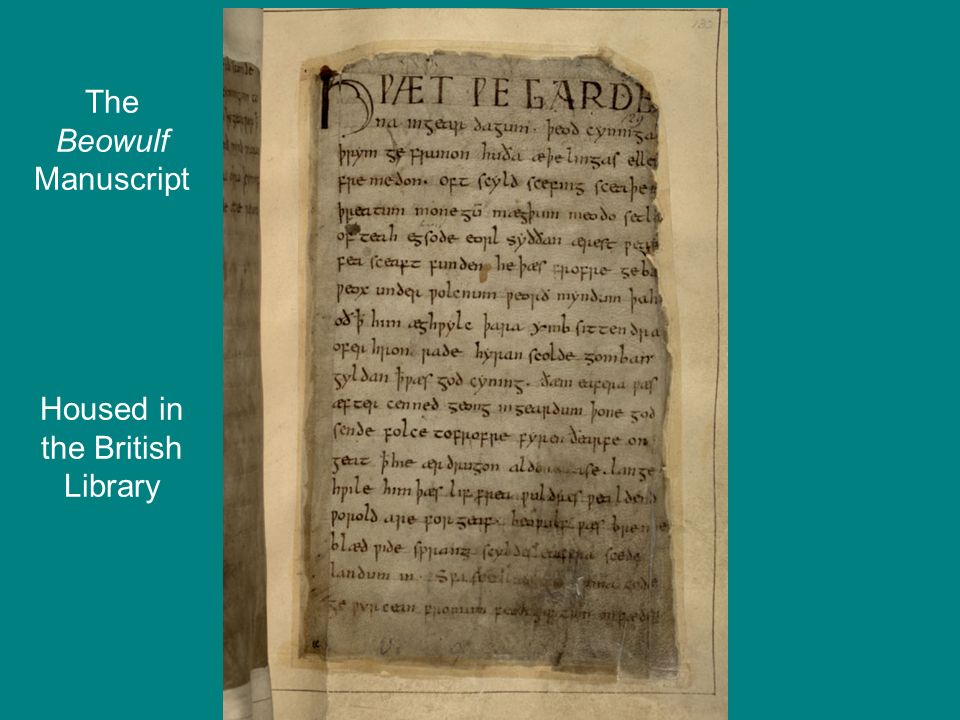 The
Beowulf
Manuscript
Housed in
the British
Library
132
HǷÆT ǷE GARDE
129
na ingear dagum. þeod cyninga
þrym ge frunon huða æþelingas elle
fremedon. oft scyld scefing sceaþe
þreatum monegū mægþum meodo setla
of teah egsode eorl syððan ærest
fea sceaft funden he þæs frofre geba
ƿeox under ƿolcnum ƿeorð myndum þah
oð ꝥ him æghƿylc þara ymb sittendra
ofer hron rade hyran scolde gomban
gyldan ꝥƿæs god cyning. ðæm eafera ƿæs
æfter cenned geong ingeardum þone god
sende folce tofrofre fyren ðearfe on
geat ꝥhie ær drugon lange
hƿile him þæs lif frea ƿuldres ƿealdend
ƿorold are for geaf. beoƿulf ƿæs breme
blæd ƿide sprang scyldes eafera scede
landum in. guma gode
ge ƿyrcean fromum feoh giftum